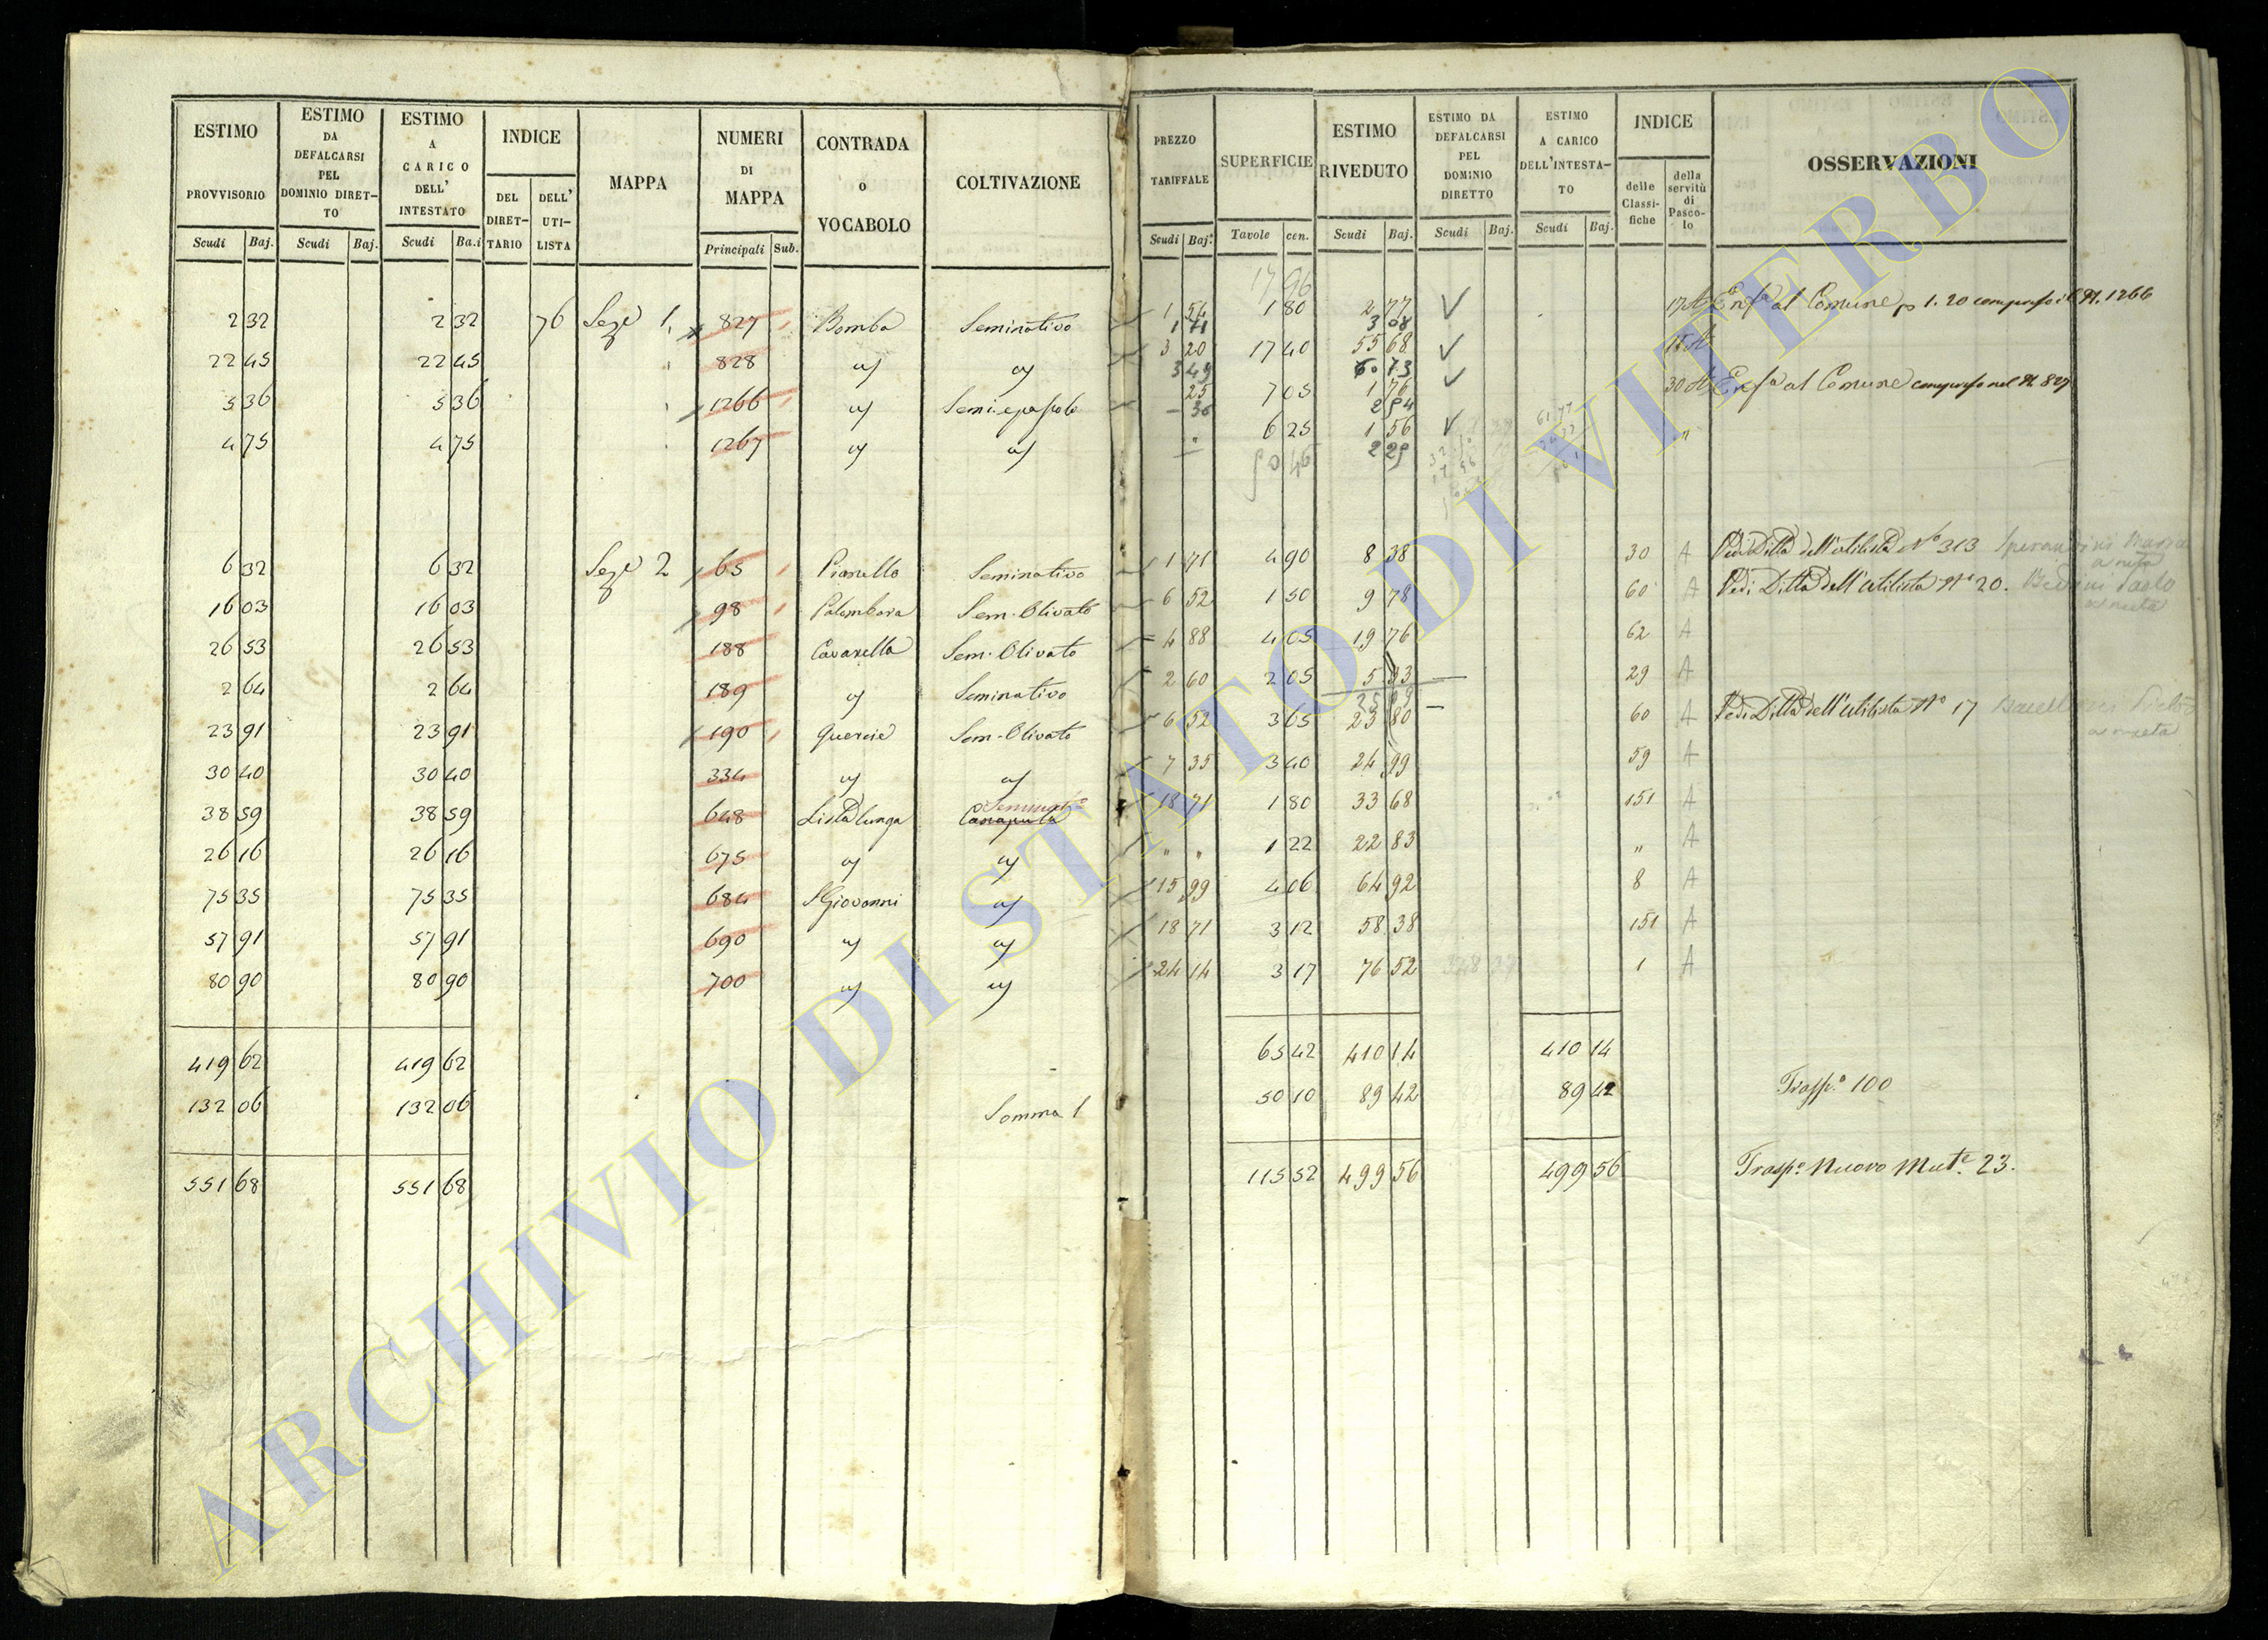 ESTIMO PROVVISORIO Scudi Baj.
ESTIMO DA DEFALCARSI PEL DOMINIO DIRET-TO Scudi Baj.
ESTIMO A CARICO DELL' INTESTATO Scudi Ba.i
INDICE DEL DIRET-TARIO DELL' UTI-LISTA
MAPPA
NUMERI DI MAPPA Principali Sub.
CONTRADA o VOCABOLO
COLTIVAZIONE
PREZZO TARIFFALE Scudi Baj.
SUPERFICIE Tavole cen.
ESTIMO RIVEDUTO Scudi Baj.
ESTIMO DA DEFALCARSI PEL DOMINIO DIRETTO Scudi Baj.
ESTIMO A CARICO DELL'INTESTA-TO Scudi Baj.
INDICE delle Classi-fiche della servitù di Pasco-lo
OSSERVAZIONI
17 96
2 32 2 32 76 Seze 1. 827 Bomba Seminativo 1 54 1 80 2 77 17 al Comune p 1.20 compreso il N. 1266
1 71 3 08
22 45 22 45 828 3 20 17 40 55 68
3 49 60 73
5 36 5 36 1266 Sem. e pascolo 25 7 05 1 76 30 al Comune compreso nel N. 827
- 36 2 54
4 75 4 75 1267 " 6 25 1 56 "
2 25
6 32 6 32 Seze 2 65 Pianello Seminativo 1 71 4 90 8 38 30 A Vedi Ditta dell'utilista N° 313
16 03 16 03 98 Palombara Sem. Olivato 6 52 1 50 9 78 60 A Vedi Ditta dell'utilista N° 20.
26 53 26 53 188 Cavarella Sem. Olivato 4 88 4 05 19 76 62 A
2 64 2 64 189 Seminativo 2 60 2 05 5 33 29 A
23 91 23 91 190 Quercie Sem. Olivato 6 52 3 65 23 80 60 A Vedi Ditta dell'utilista N° 17
30 40 30 40 334 7 35 3 40 24 99 59 A
38 59 38 59 648 Lista lunga Canapula 18 71 1 80 33 68 151 A
26 16 26 16 675 " " 1 22 22 83 " A
75 35 75 35 684 S Giovanni 15 99 4 06 64 92 8 A
57 91 57 91 690 18 71 3 12 58 38 151 A
80 90 80 90 700 24 14 3 17 76 52 1 A
419 62 419 62 65 42 410 14 410 14
132 06 132 06 Somma 1 50 10 89 42 89 42 Trasp.o 100
551 68 551 68 115 52 499 56 499 56 Trasp.o Nuovo Mut.e 23.
ARCHIVIO DI STATO DI VITERBO